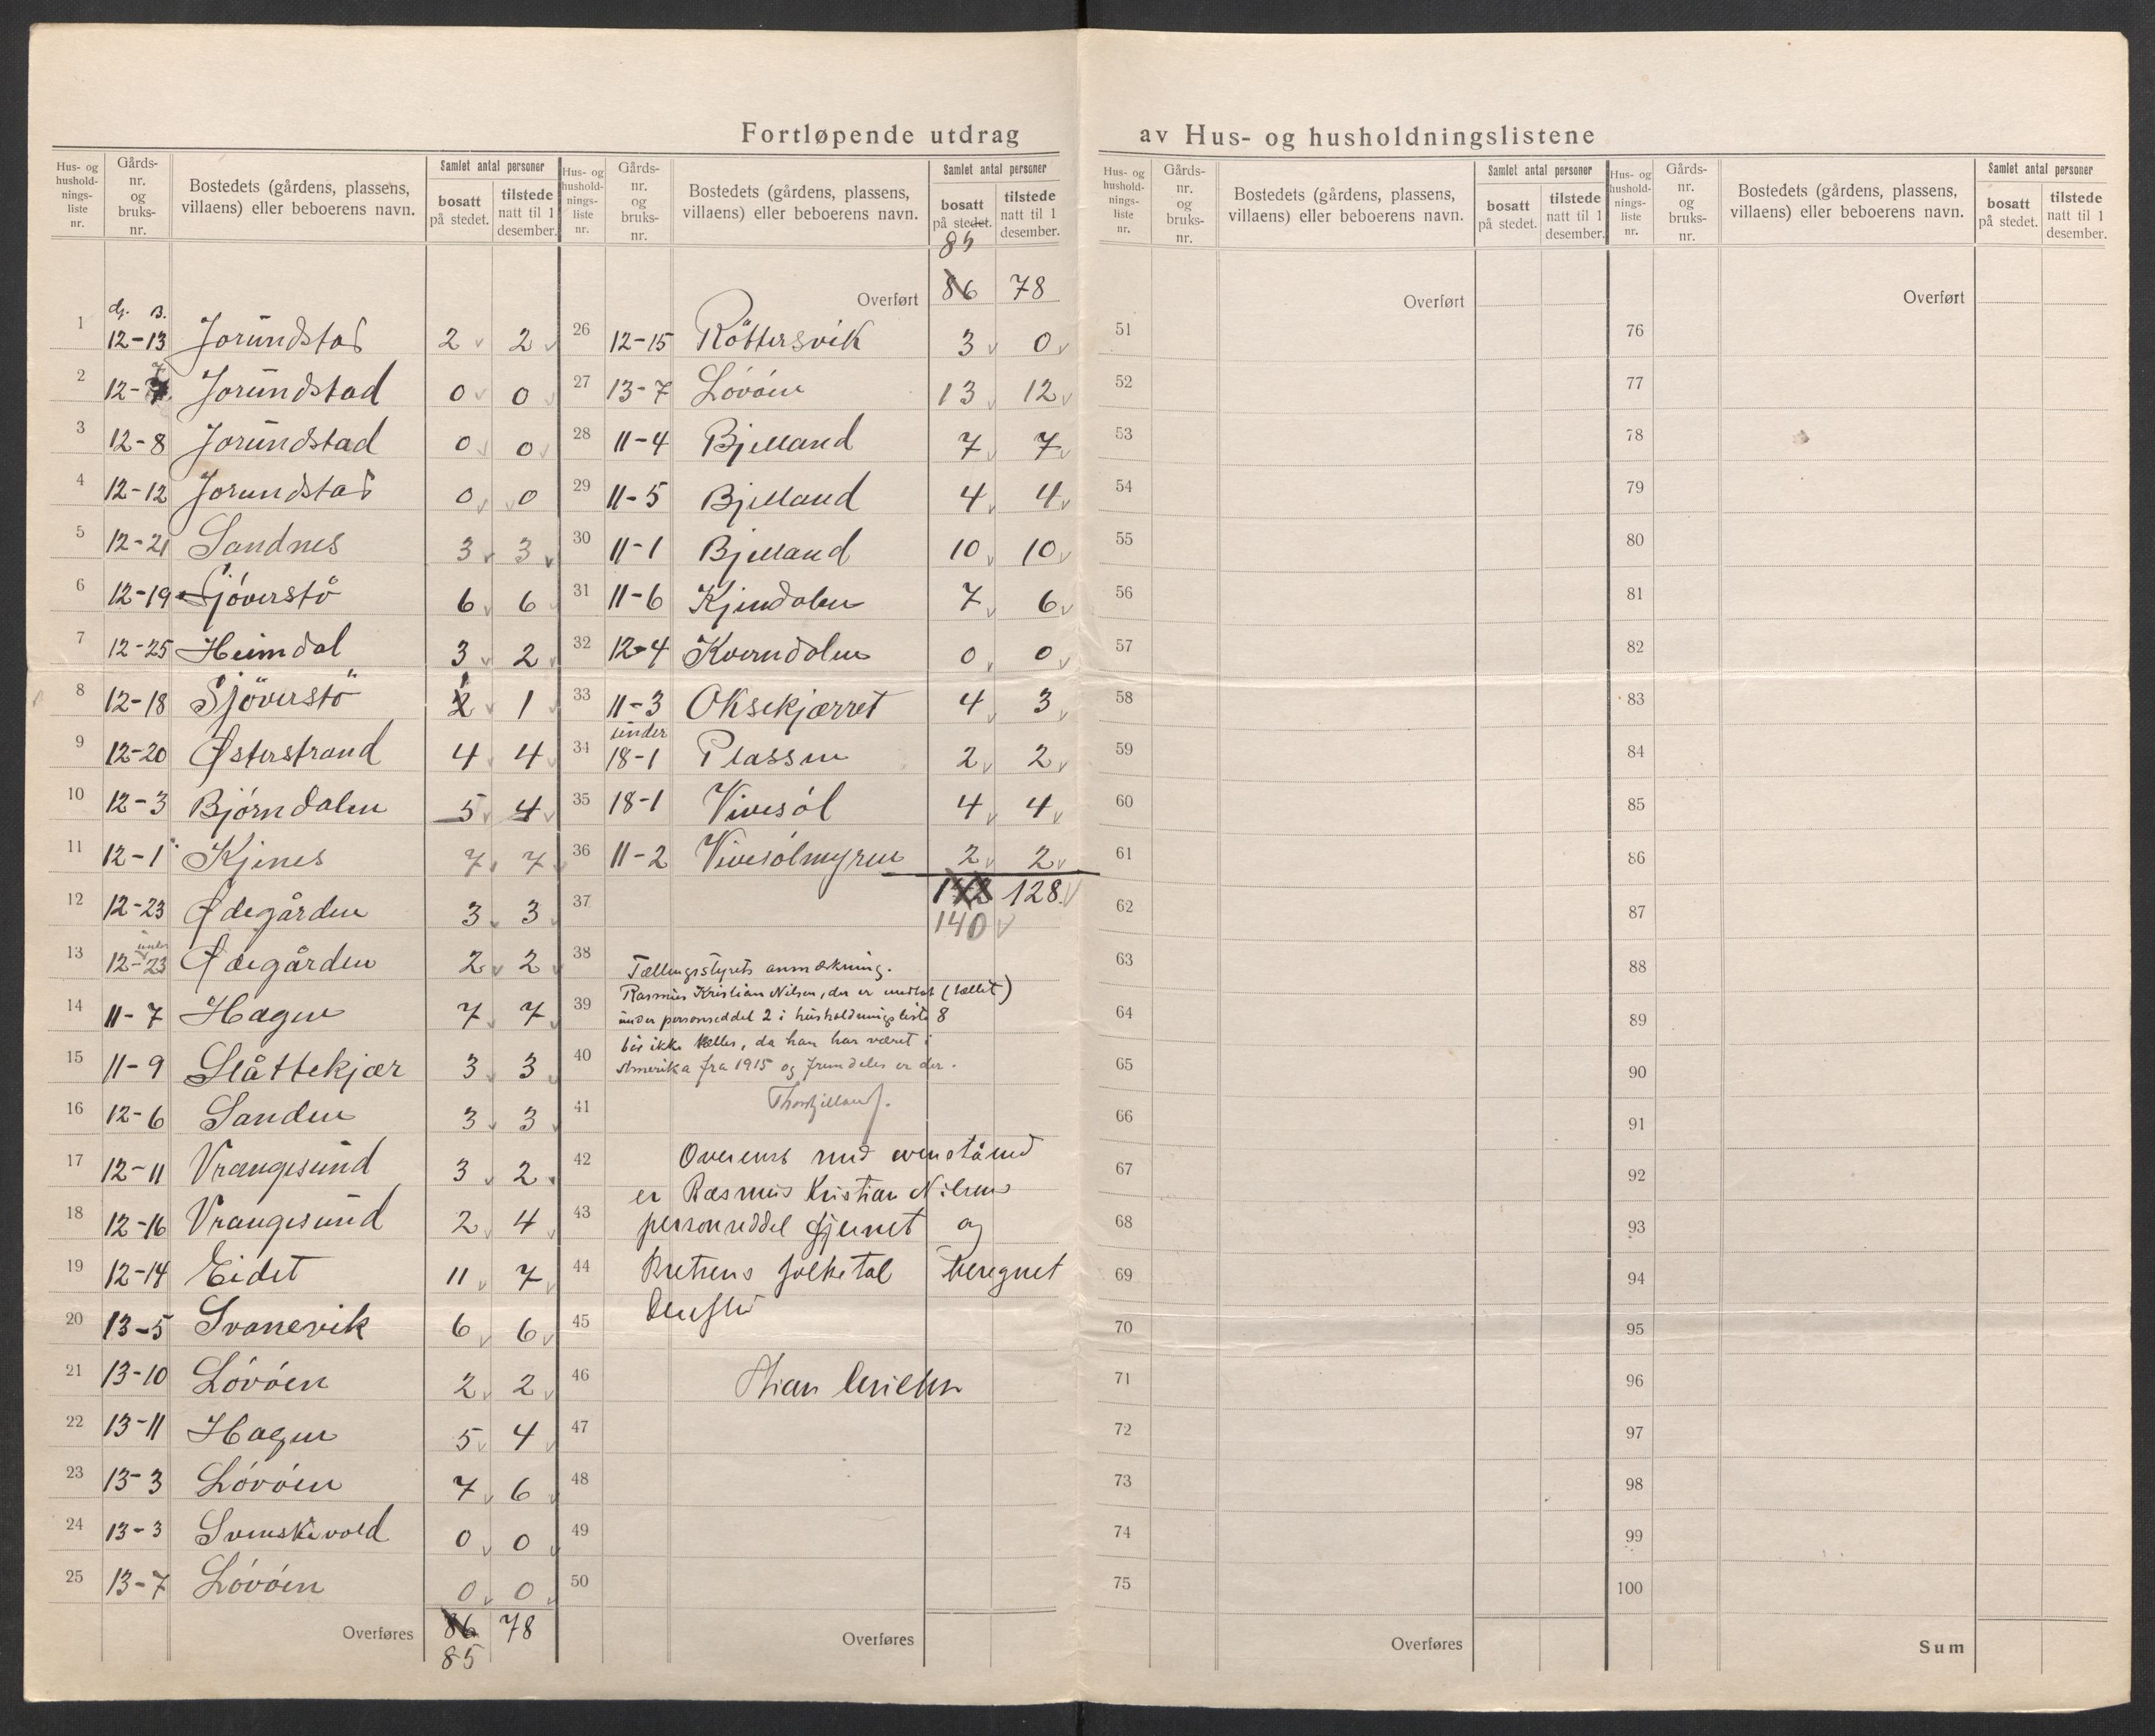 Fortløpende utdrag av Hus- og husholdningslistene
Hus- og hushold-nings-liste nr. | Gårds-nr. og bruks-nr. | Bostedets (gårdens, plassens, villaens) eller beboerens navn. | Samlet antal personer | bosatt på stedet. | tilstede natt til 1 desember.
G. B.
1 12-13 Jorundstad 2 2
2 12-7 Jorundstad 0 0
3 12-8 Jorundstad 0 0
4 12-12 Jorundstad 0 0
5 12-21 Sandnes 3 3
6 12-19 Sjöverstö 6 6
7 12-25 Heimdal 3 2
8 12-18 Sjöverstö 2 1 1
9 12-20 Østerstrand 4 4
10 12-3 Björndalen 5 4
11 12-1 Kjenes 7 7
12 12-23 Ødegården 3 3
13 under 12-23 Ødegården 2 2
14 11-7 Hagen 7 7
15 11-9 Slåttekjær 3 3
16 12-6 Sanden 3 3
17 12-11 Vrangesund 3 2
18 12-16 Vrangesund 2 4
19 12-14 Eidet 11 7
20 13-5 Svanevik 6 6
21 13-10 Lóvóen 2 2
22 13-11 Hagen 5 4
23 13-3 Lóvóen 7 6
24 13-3 Svenskevold 0 0
25 13-7 Lóvóen 0 0
Overføres 86 78
85
Hus- og hushold-nings-liste nr. | Gårds-nr. og bruks-nr. | Bostedets (gårdens, plassens, villaens) eller beboerens navn. | Samlet antal personer | bosatt på stedet. | tilstede natt til 1 desember.
85
Overført 86 78
26 12-15 Röttersvik 3 0
27 13-7 Lóvóen 13 12
28 11-4 Bjelland 7 7
29 11-5 Bjelland 4 4
30 11-1 Bjelland 10 10
31 11-6 Kjendalen 7 6
32 12-4 Kverndalen 0 0
33 11-3 Oksekjærret 4 3
34 under 18-1 Plassen 2 2
35 18-1 Vivesöl 4 4
36 11-2 Vivesölmyren 2 2
37 128
140
38 Tællingsstyrets anmærkning.
39 Rasmus Kristian Nilsen, der er medtat (tællet)
under personseddel 2 i husholdningsliste 8
40 bör ikke tælles, da han har været i
Amerika fra 1915 og fremdeles er der.
41
42 Overens med ovenståend
er Rasmus Kristian Nilsens
43 personseddel fjernet og
44 kretsens folketal beregnet
45 derefter
46
47
48
49
50
Overføres
Hus- og hushold-nings-liste nr. | Gårds-nr. og bruks-nr. | Bostedets (gårdens, plassens, villaens) eller beboerens navn. | Samlet antal personer | bosatt på stedet. | tilstede natt til 1 desember.
Overført
51
52
53
54
55
56
57
58
59
60
61
62
63
64
65
66
67
68
69
70
71
72
73
74
75
Overføres
Hus- og hushold-nings-liste nr. | Gårds-nr. og bruks-nr. | Bostedets (gårdens, plassens, villaens) eller beboerens navn. | Samlet antal personer | bosatt på stedet. | tilstede natt til 1 desember.
Overført
76
77
78
79
80
81
82
83
84
85
86
87
88
89
90
91
92
93
94
95
96
97
98
99
100
Sum